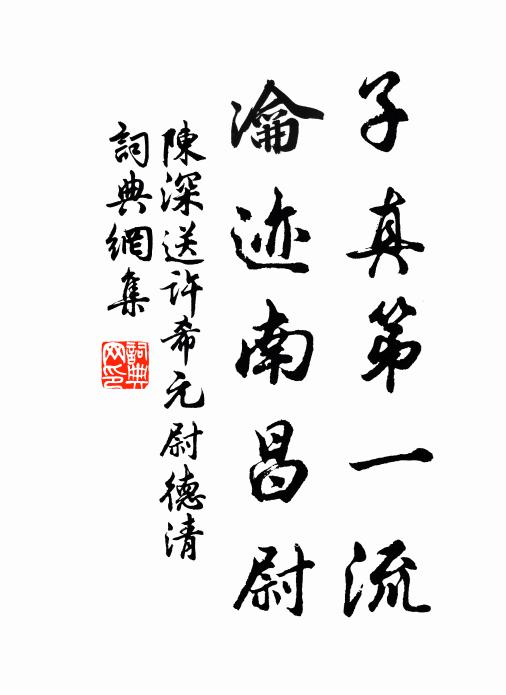 子真第一流
瀹迹南昌尉
陳深送許希元尉德清
詞典網集
詞典网印